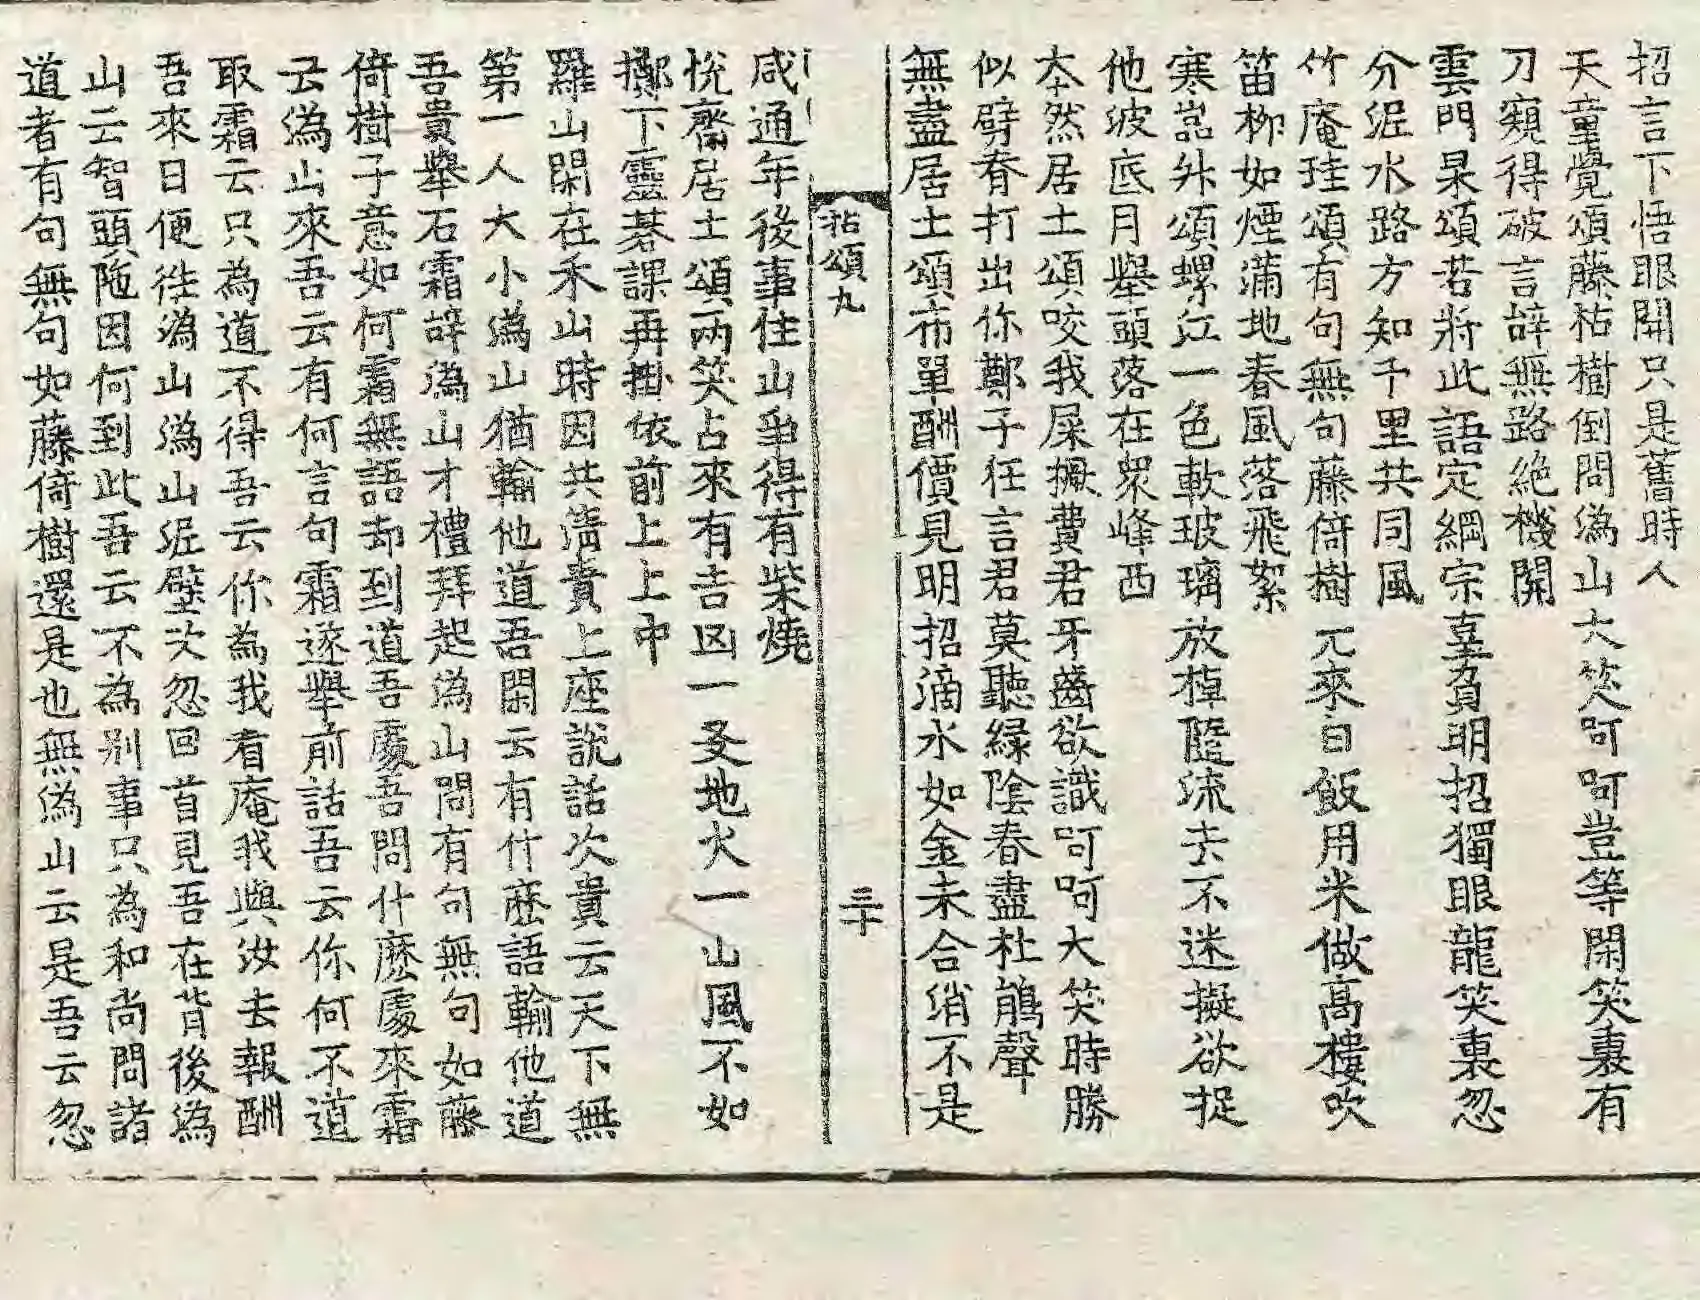 招言下悟眼開只是舊時人
天童覺頌藤枯樹倒問潙山大笑呵呵豈等閑笑裏有
刀窺得破言辝無路絶機開
雲門杲頌若將此語定綱宗辜負明招獨眼龍笑裏忽
分泥水路方知千里共同風
竹庵珪頌有句無句藤倚樹 元來白飯用米做高樓吹
笛柳如煙蒲地春風落飛絮
寒嵓外頌螺江一色軟玻璃放棹隨流去不迷擬欲捉
他波底月舉頭落在衆峰西
本然居士頌咬我屎橛費君牙齒欲識呵呵大笑時勝
似劈脊打出你鄭子任言君莫聽緑陰春盡杜鵑聲
無盡居士頌布單酬價見明招滴水如金未合消不是
拈頌九
三十
咸通年後事住山爭得有柴燒
恱齋居士頌兩笑占來有吉凶一爻地火一山風不如
擲下靈碁課再掛依前上上中
羅山閑在禾山時因共淸貴上座說話次貴云天下無
第一人大小潙山猶輸他道吾閑云有什麽語輸他道
吾貴舉石霜辝潙山才禮拜起潙山問有句無句如藤
倚樹子意如何霜無語却到道吾處吾問什麽處來霜
云潙山來吾云有何言句霜遂舉前話吾云你何不道
取霜云只為道不得吾云你為我看庵我與汝去報酬
吾來日便徃潙山潙山泥壁次忽回首見吾在背後潙
山云智頭陁因何到此吾云不為别事只為和尚問諸
道者有句無句如藤倚樹還是也無潙山云是吾云忽